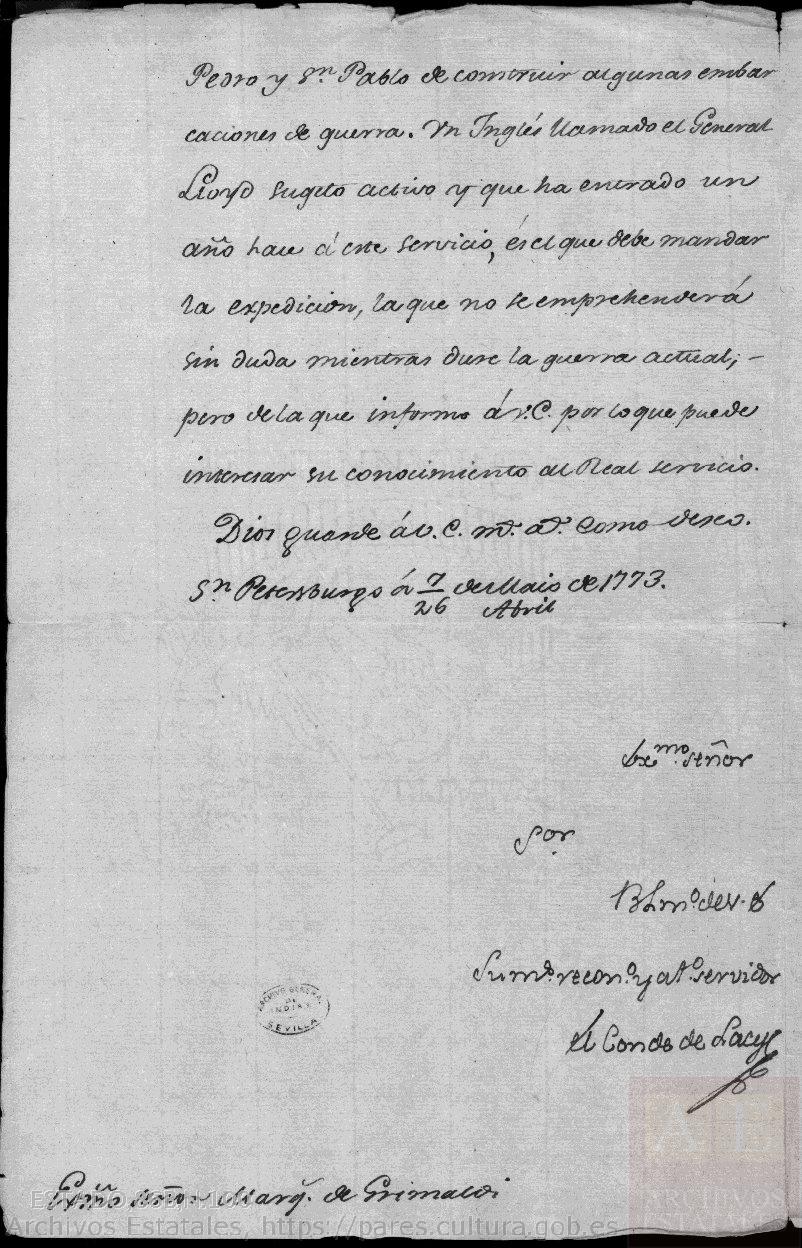 Pedro y Sn. Pablo de construir algunas embar
caciones de guerra. Un Inglés llamado el General
Lloyd sugeto activo y que ha entrado un
año hace á este servicio, és el que debe mandar
la expedicion, la que no se emprehenderá
sin duda mientras dure la guerra actual; -
pero de la que informo á V.E. por lo que puede
interesar su conocimiento al Real servicio.
Dios guarde á V.E. ms. as. como deseo.
Sn. Petersburgo á 7/26 de Maio/Abril de 1773.
Exmo. Señor
Sor.
B L mo. de V.E.
Su ms. recono. y ato. servidor
El Conde de Lacy
ARCHIVO GENERAL
DE
INDIAS
SEVILLA
Exmo. Señor Marqs. de Grimaldi
AE
ARCHIVOS
ESTATALES
Archivos Estatales, https://pares.cultura.gob.es